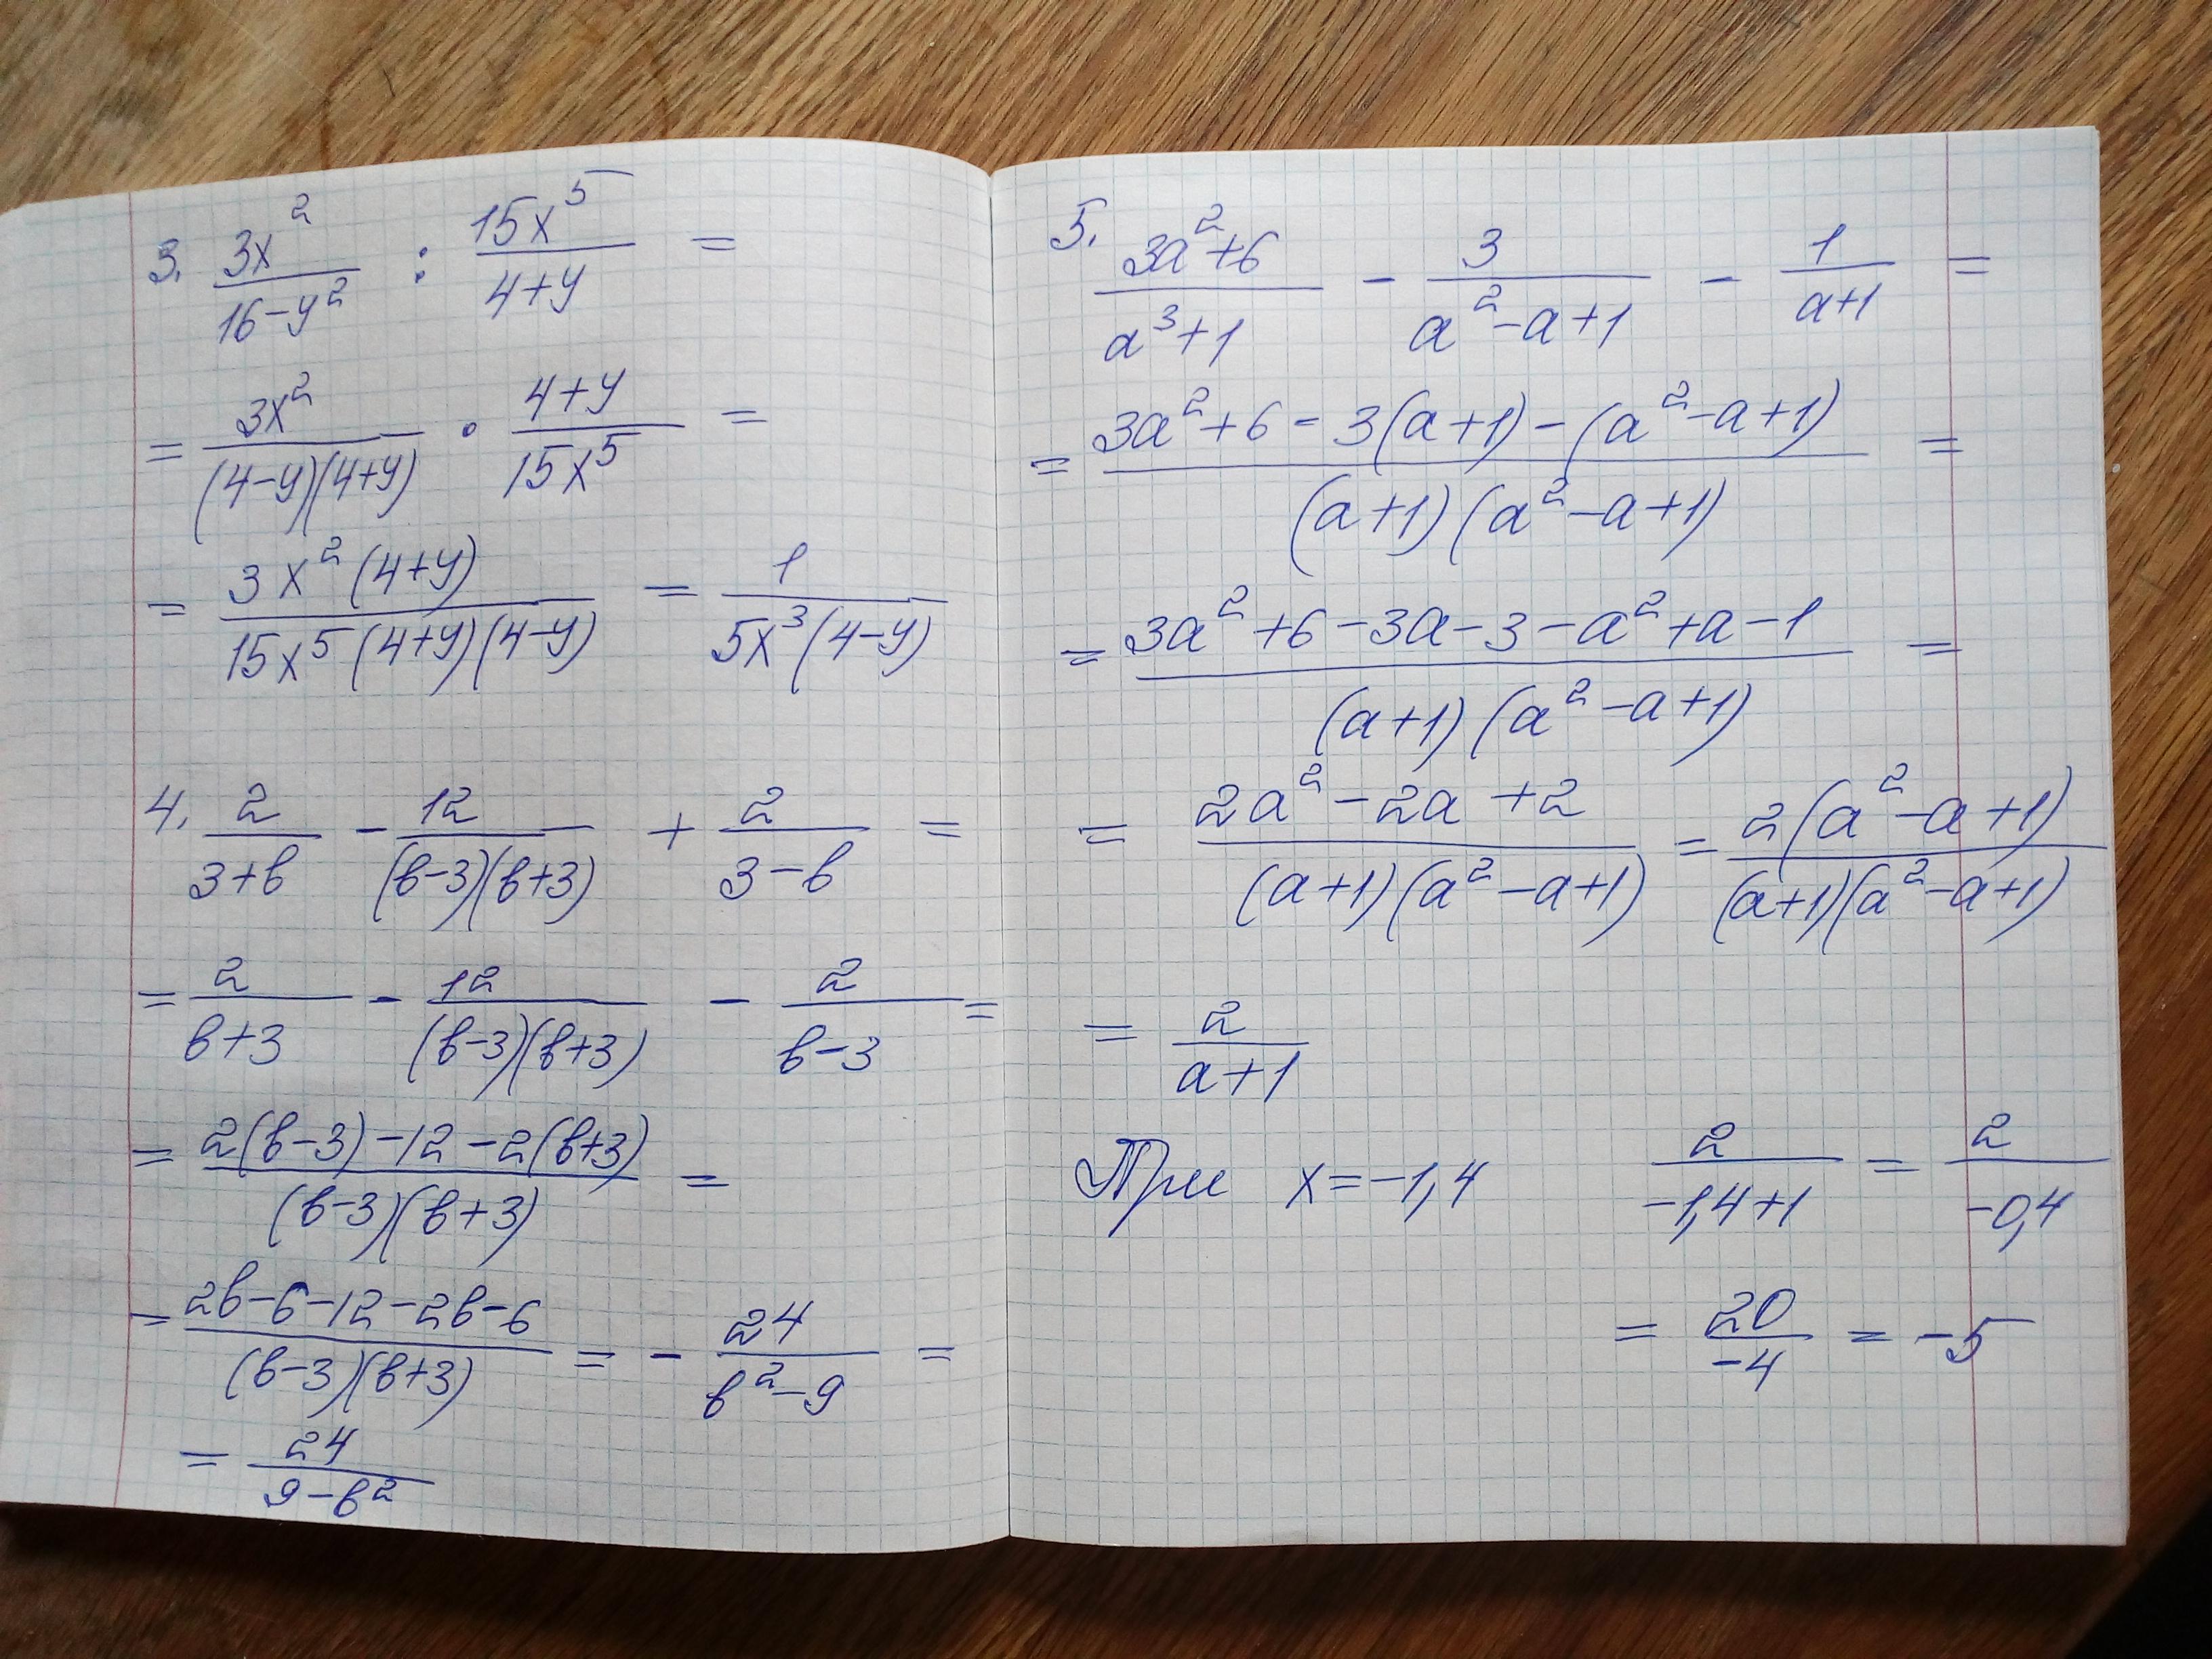 3. 3x²/(16-y²) : 15x⁵/(4+y) =
= 3x²/((4-y)(4+y)) · (4+y)/(15x⁵) =
= 3x²(4+y)/(15x⁵(4+y)(4-y)) = 1/(5x³(4-y))
4. 2/(3+в) - 12/((в-3)(в+3)) + 2/(3-в) =
= 2/(в+3) - 12/((в-3)(в+3)) - 2/(в-3) =
= (2(в-3)-12-2(в+3))/((в-3)(в+3)) =
= (2в-6-12-2в-6)/((в-3)(в+3)) = - 24/(в²-9) =
= 24/(9-в²)
5. (3a²+6)/(a³+1) - 3/(a²-a+1) - 1/(a+1) =
= (3a²+6-3(a+1)-(a²-a+1))/((a+1)(a²-a+1)) =
= (3a²+6-3a-3-a²+a-1)/((a+1)(a²-a+1)) =
= (2a²-2a+2)/((a+1)(a²-a+1)) = 2(a²-a+1)/((a+1)(a²-a+1))
= 2/(a+1)
При x=-1,4 2/(-1,4+1) = 2/(-0,4)
= 20/(-4) = -5